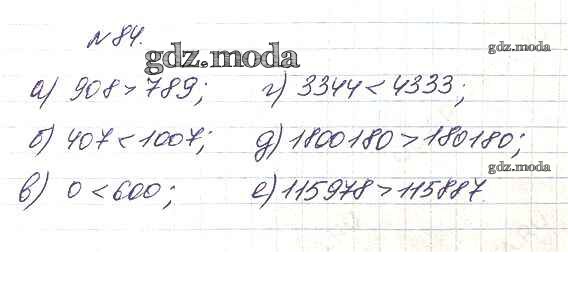 №84.
gdz.moda
gdz.moda
а) 908 > 789; г) 3344 < 4333;
б) 407 < 1007; д) 1800180 > 180180;
gdz.moda
в) 0 < 600; е) 115978 > 115887.